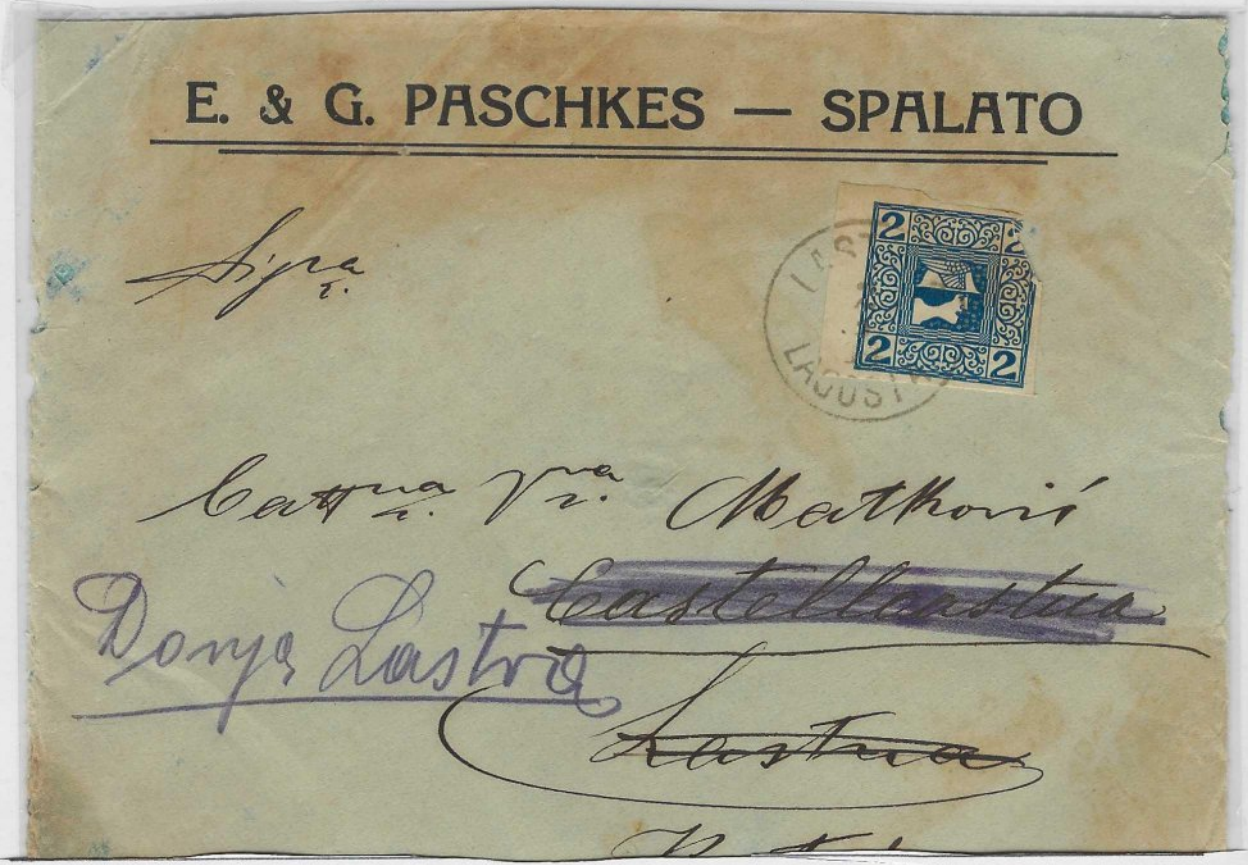 E. & G. PASCHKES — SPALATO
Sigra
2 2
2 2
LAST
LAGOSTA
Catt.na Matković
Castellastua
Donja Lastva
Lastua